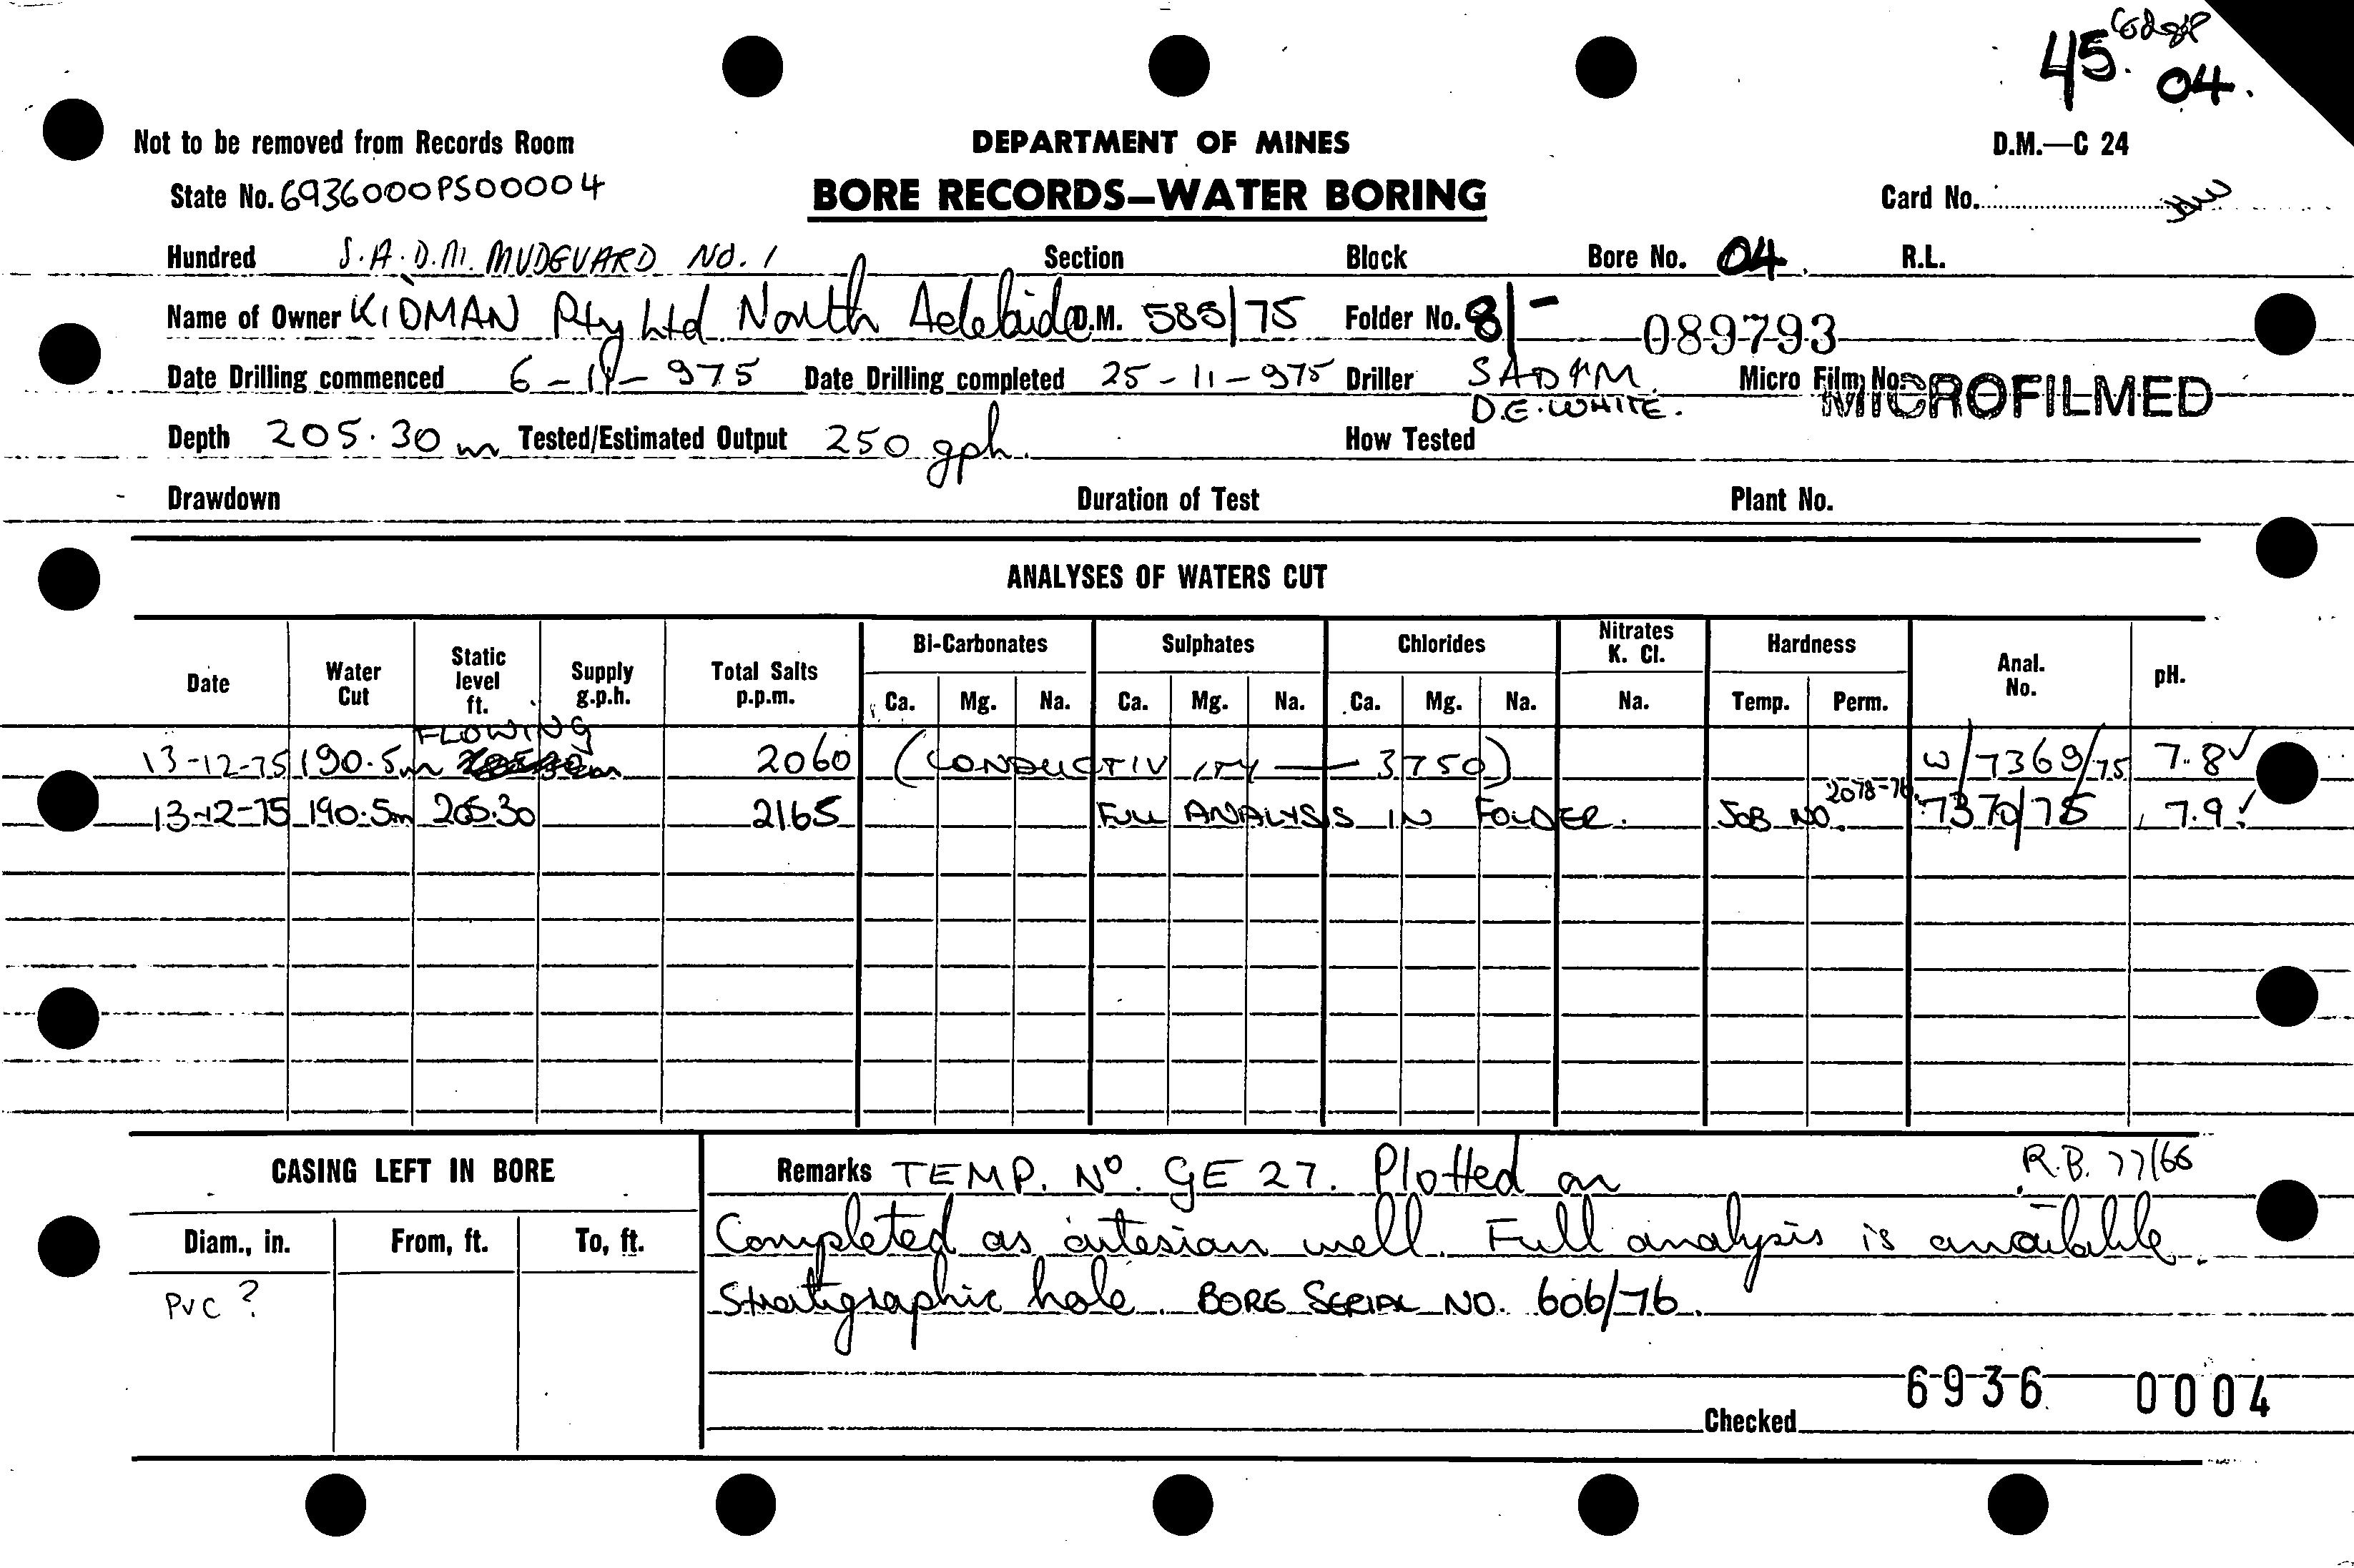 45. 04.
Not to be removed from Records Room DEPARTMENT OF MINES D.M.—C 24
State No. 6936000PS00004 BORE RECORDS—WATER BORING Card No.
Hundred S.A.D.M. MUDGUARD NO. 1 Section Block Bore No. 04. R.L.
Name of Owner KIDMAN Pty Ltd North Adelaide D.M. 585/75 Folder No. 8/- 089793
Date Drilling commenced 6-11-975 Date Drilling completed 25-11-975 Driller SADM. Micro Film No. MICROFILMED
D.E. WHITE.
Depth 205.30 m Tested/Estimated Output 250 gph. How Tested
Drawdown Duration of Test Plant No.
ANALYSES OF WATERS CUT
Date Water Cut Static level ft. Supply g.p.h. Total Salts p.p.m. Bi-Carbonates Sulphates Chlorides Nitrates K. Cl. Hardness Anal. No. pH.
Ca. Mg. Na. Ca. Mg. Na. Ca. Mg. Na. Na. Temp. Perm.
FLOWING
13-12-75 190.5m 2060 (CONDUCTIVITY — 3750) W/7369/75 7.8✓
13-12-75 190.5m 205.30 2165 FULL ANALYSIS IN FOLDER. JOB NO. 2078-76. 7370/75 7.9✓
CASING LEFT IN BORE Remarks TEMP. No. GE 27. Plotted on R.B. 77/66
Diam., in. From, ft. To, ft. Completed as artesian well. Full analysis is available.
PVC ? Stratigraphic hole. BORE SERIAL NO. 606/76.
6936 0004
Checked